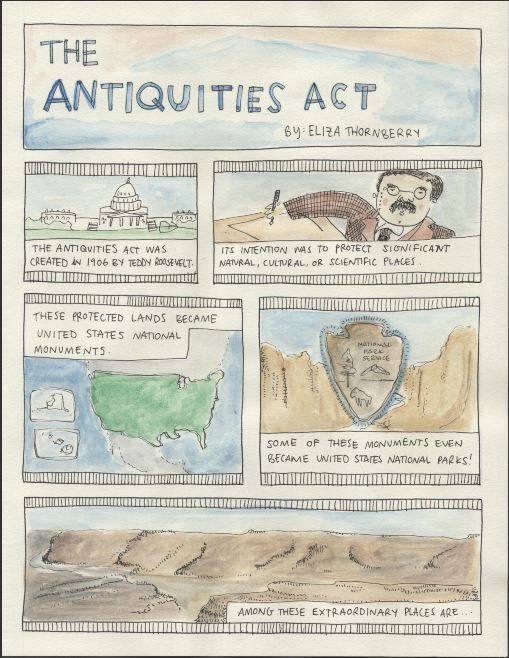 THE
ANTIQUITIES ACT
BY: ELIZA THORNBERRY
THE ANTIQUITIES ACT WAS
CREATED IN 1906 BY TEDDY ROOSEVELT.
ITS INTENTION WAS TO PROTECT SIGNIFICANT
NATURAL, CULTURAL, OR SCIENTIFIC PLACES.
THESE PROTECTED LANDS BECAME
UNITED STATES NATIONAL
MONUMENTS.
NATIONAL
PARK
SERVICE
SOME OF THESE MONUMENTS EVEN
BECAME UNITED STATES NATIONAL PARKS!
AMONG THESE EXTRAORDINARY PLACES ARE...